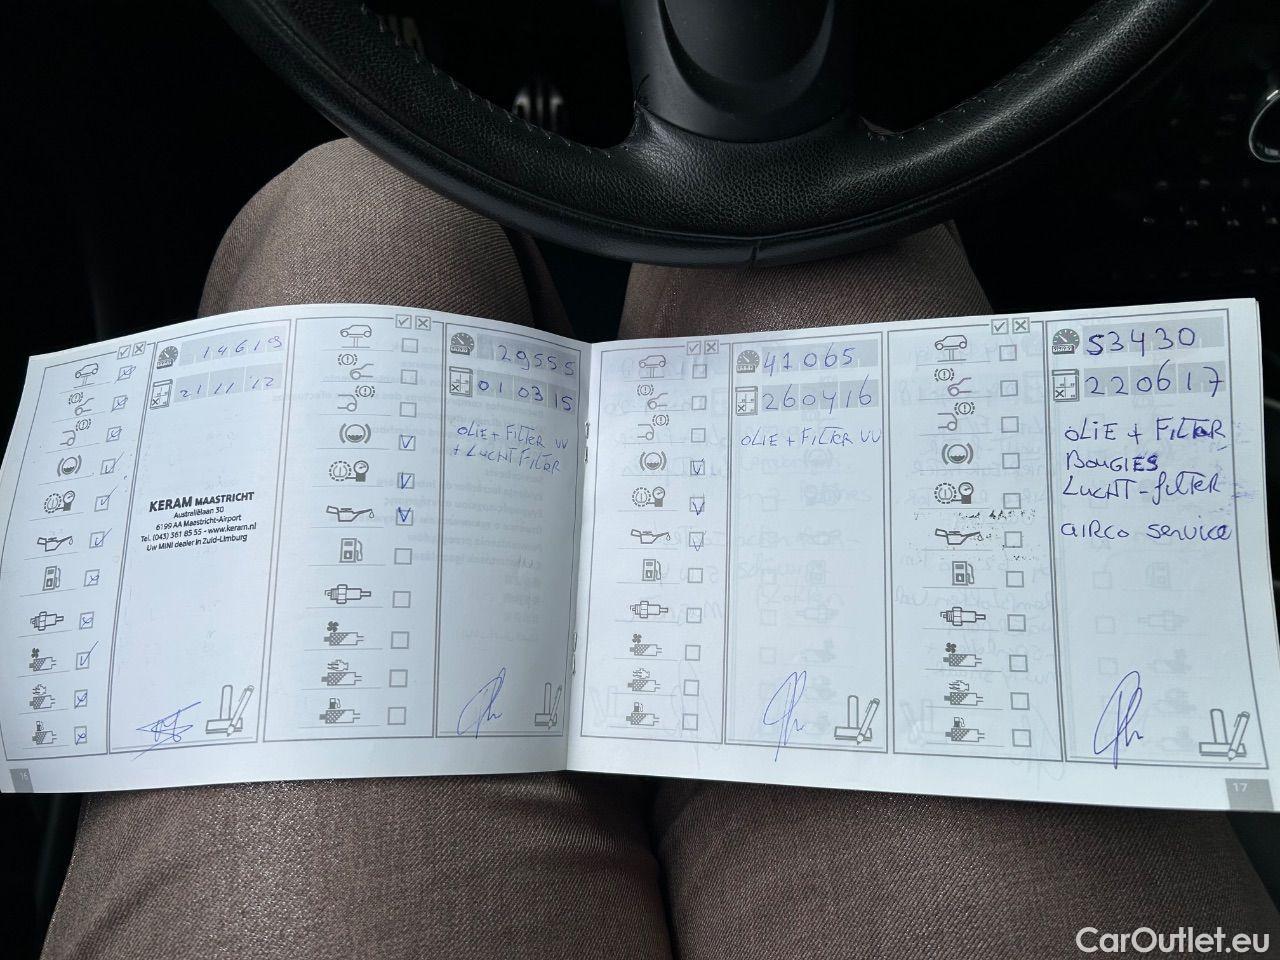 14619
21 11 12
KERAM MAASTRICHT
Australiëlaan 30
6199 AA Maastricht-Airport
Tel. (043) 361 85 55 - www.keram.nl
Uw MINI dealer in Zuid-Limburg
16
29555
01 03 15
OLIE + FILTER VV
+ LUCHT FILTER
41065
260416
OLIE + FILTER VV
53430
220617
OLIE + FILTER
BOUGIES
LUCHT-FILTER
AIRCO SERVICE
17
CarOutlet.eu